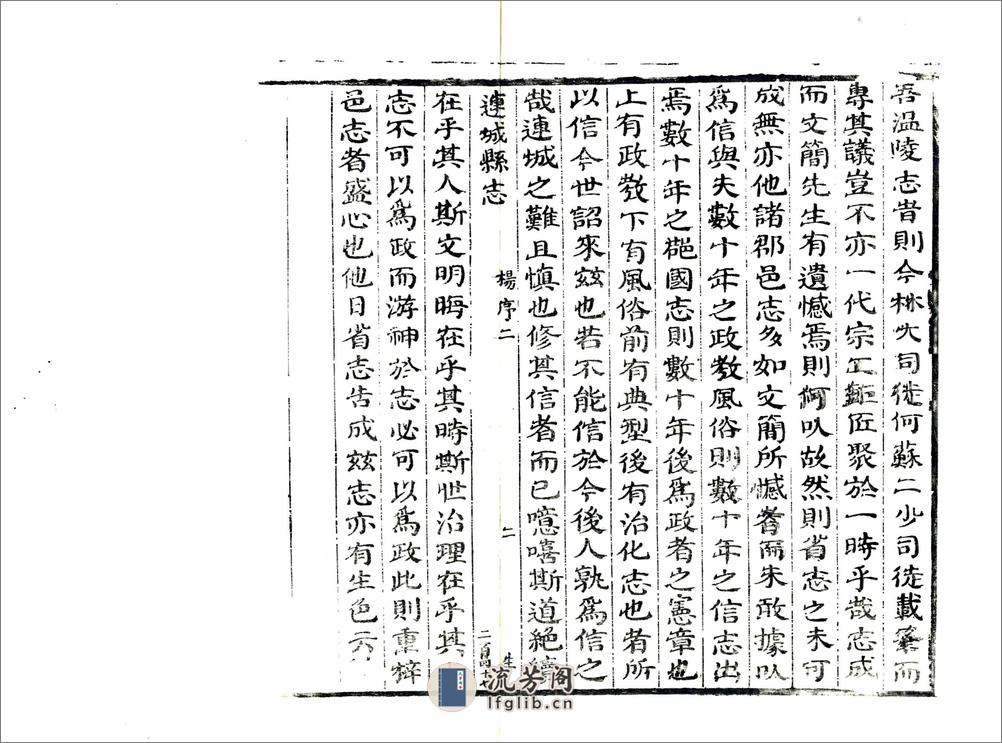 吾溫陵志昔則今林大司徒何蘇二少司徒載筆而
專其議豈不亦一代宗工鉅匠聚於一時乎哉志成
而文簡先生有遺憾焉則何以故然則省志之未可
成無亦他諸郡邑志多如文簡所憾者而未敢據以
為信與夫數十年之政教風俗則數十年之信志出
焉數十年之郡國志則數十年後為政者之憲章也
上有政教下有風俗前有典型後有治化志也者所
以信今世詔來玆也若不能信於今後人孰為信之
哉連城之難且慎也修其信者而已噫嘻斯道絕續
連城縣志 楊序二 二
在乎其人斯文明晦在乎其時斯世治理在乎其
志不可以為政而游神於志必可以為政此則重梓
邑志者盛心也他日省志告成玆志亦有生色云
流芳阁
lfglib.cn